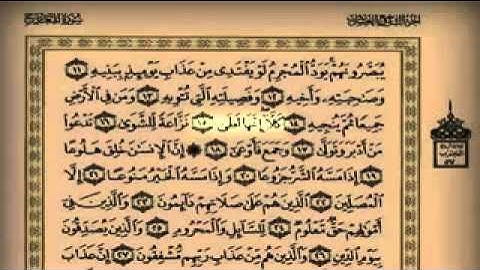 الجزء التاسع والعشرون
سورة المعارج
يُبَصَّرُونَهُمْ يَوَدُّ ٱلْمُجْرِمُ لَوْ يَفْتَدِى مِنْ عَذَابِ يَوْمِئِذٍۭ بِبَنِيهِ ١١
وَصَٰحِبَتِهِۦ وَأَخِيهِ ١٢ وَفَصِيلَتِهِ ٱلَّتِى تُـْٔوِيهِ ١٣ وَمَن فِى ٱلْأَرْضِ
جَمِيعًا ثُمَّ يُنجِيهِ ١٤ كَلَّآ إِنَّهَا لَظَىٰ ١٥ نَزَّاعَةً لِّلشَّوَىٰ ١٦ تَدْعُوا۟
مَنْ أَدْبَرَ وَتَوَلَّىٰ ١٧ وَجَمَعَ فَأَوْعَىٰٓ ١٨ إِنَّ ٱلْإِنسَٰنَ خُلِقَ هَلُوعًا
١٩ إِذَا مَسَّهُ ٱلشَّرُّ جَزُوعًا ٢٠ وَإِذَا مَسَّهُ ٱلْخَيْرُ مَنُوعًا ٢١ إِلَّا
ٱلْمُصَلِّينَ ٢٢ ٱلَّذِينَ هُمْ عَلَىٰ صَلَاتِهِمْ دَآئِمُونَ ٢٣ وَٱلَّذِينَ فِىٓ
أَمْوَٰلِهِمْ حَقٌّ مَّعْلُومٌ ٢٤ لِّلسَّآئِلِ وَٱلْمَحْرُومِ ٢٥ وَٱلَّذِينَ يُصَدِّقُونَ
بِيَوْمِ ٱلدِّينِ ٢٦ وَٱلَّذِينَ هُم مِّنْ عَذَابِ رَبِّهِم مُّشْفِقُونَ ٢٧ إِنَّ عَذَابَ